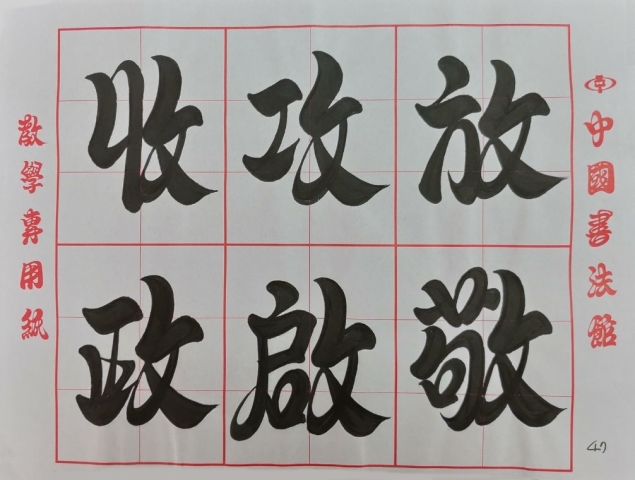 中國書法館
放攻收
敬啟政
教學專用紙
47